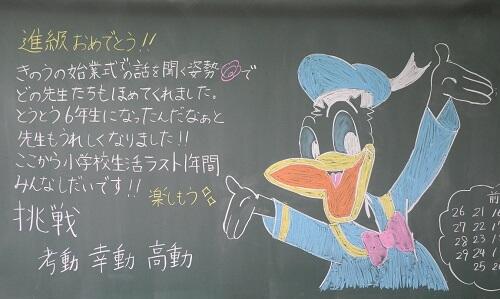 進級おめでとう!!
きのうの始業式での話を聞く姿勢◎で
どの先生たちもほめてくれました。
とうとう6年生になったんだなぁと
先生もうれしくなりました!!
ここから小学校生活ラスト1年間
みんなしだいです!! 楽しもう
挑戦
考動 幸動 高動
前
26 21
27 22
28 23
29 24
25